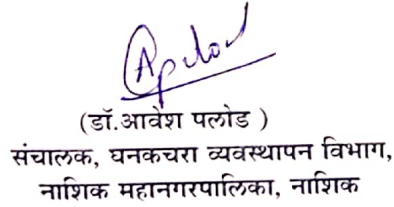 (डॉ.आवेश पलोड )
संचालक, घनकचरा व्यवस्थापन विभाग,
नाशिक महानगरपालिका, नाशिक